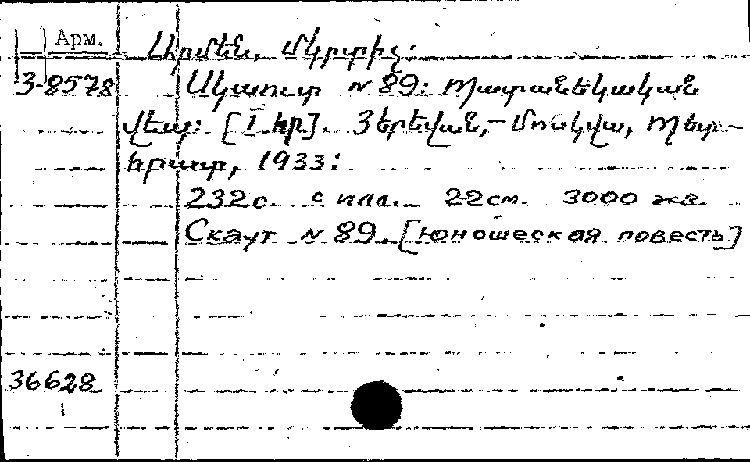 Арм.
Արմեն, Մկրտիչ:
3-8578
Սկաուտ N 89: Պատանեկական
վեպ: [I հր]. Յերեվան,-Մոսկվա, Պետ-
հրատ, 1933:
232с. с илл. 22см. 3000 экз.
Скаут N 89. [юношеская повесть]
36628